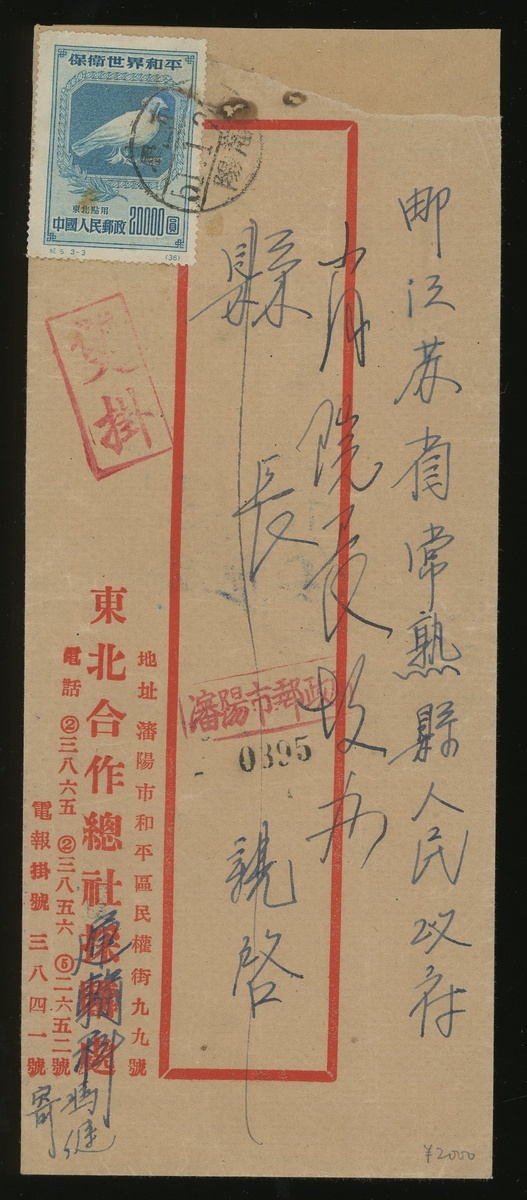 郵江蘇省常熟縣人民政府
縣長 親啓
保衛世界和平
東北貼用
中國人民郵政 20000圓
紀5. 3-3
(36)
瀋陽
51.1.2
雙掛
瀋陽市郵政
0395
地址 瀋陽市和平區民權街九九號
東北合作總社
運輸科
電話 ②三八六五 ②三八五六 ⑤二六五二號
電報掛號 三八四一號
寄
¥2000